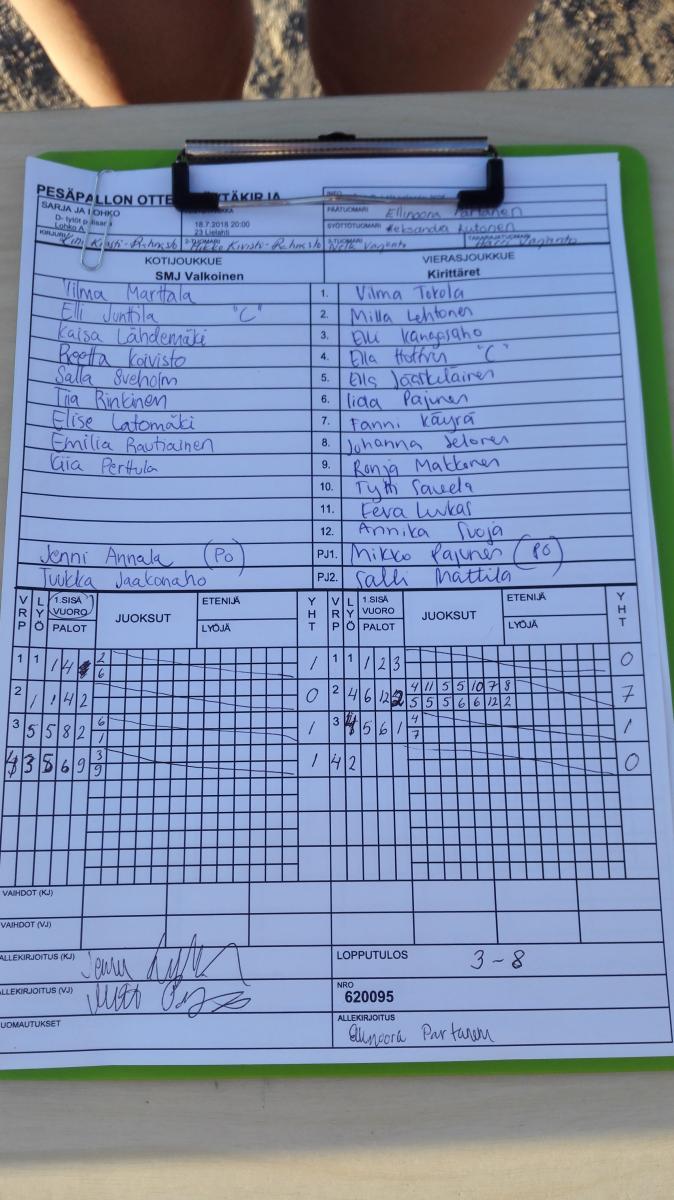 PESÄPALLON OTTE
SARJA JA LOHKO
D- tytöt
Lohko A
18.7.2018 20:00
23 Lielahti
PÄÄTUOMARI Ellinoora Partanen
SYÖTTÖTUOMARI Aleksandra Lutonen
KIRJURI
2-TUOMARI Mikko Kivistö-Rahnasto
3-TUOMARI
TAKARAJATUOMARI
KOTIJOUKKUE VIERASJOUKKUE
SMJ Valkoinen Kirittäret
Vilma Marttala 1. Vilma Tokola
Elli Junttila "C" 2. Milla Lehtonen
Kaisa Lähdemäki 3. Elli Kangasaho
Reetta Koivisto 4. Ella "C"
Salla Sveholm 5. Ella Jääskeläinen
Tiia Rinkinen 6. Iida Pajunen
Elise Latomäki 7. Fanni Käyrä
Emilia Rautiainen 8. Johanna
Kiia Perttula 9. Ronja Makkonen
10. Tytti
11. Eeva Lukas
12. Annika Suoja
Jenni Annala (PO) PJ1. Mikko Pajunen (PO)
Tuukka Jaakonaho PJ2. Salli Mattila
VRP LYÖ 1.SISÄ VUORO PALOT JUOKSUT ETENIJÄ LYÖJÄ YHT VRP LYÖ 1.SISÄ VUORO PALOT JUOKSUT ETENIJÄ LYÖJÄ YHT
1 1 1 4 2 1 1 1 1 2 3 0
6
2 1 1 4 2 0 2 4 6 12 2 4 11 5 5 10 7 8 7
5 5 5 6 6 12 2
3 5 5 8 2 6 1 3 4 5 6 1 4 1
1 7
4 3 5 6 9 3 1 4 2 0
9
VAIHDOT (KJ)
VAIHDOT (VJ)
ALLEKIRJOITUS (KJ) LOPPUTULOS 3-8
ALLEKIRJOITUS (VJ) NRO
620095
HUOMAUTUKSET ALLEKIRJOITUS
Ellinoora Partanen